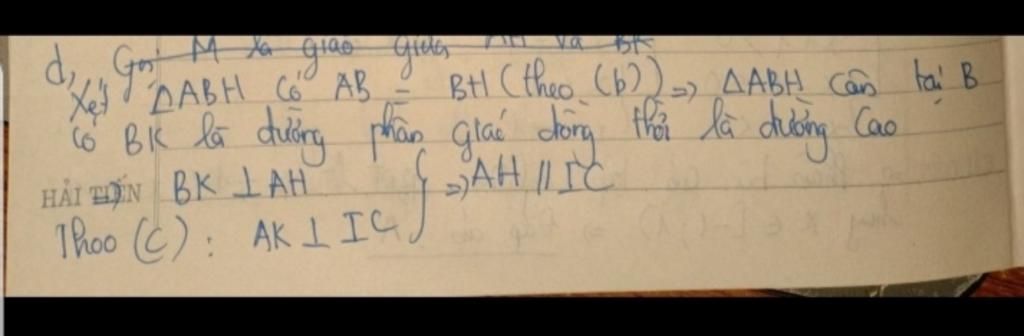 d, Gọi M là giao giữa AH và BK
Xét ΔABH có AB = BH (theo (b)) => ΔABH cân tại B
có BK là đường phân giác đồng thời là đường cao
HẢI TIẾN => BK ⊥ AH
Theo (C) : AK ⊥ IC } => AH // IC